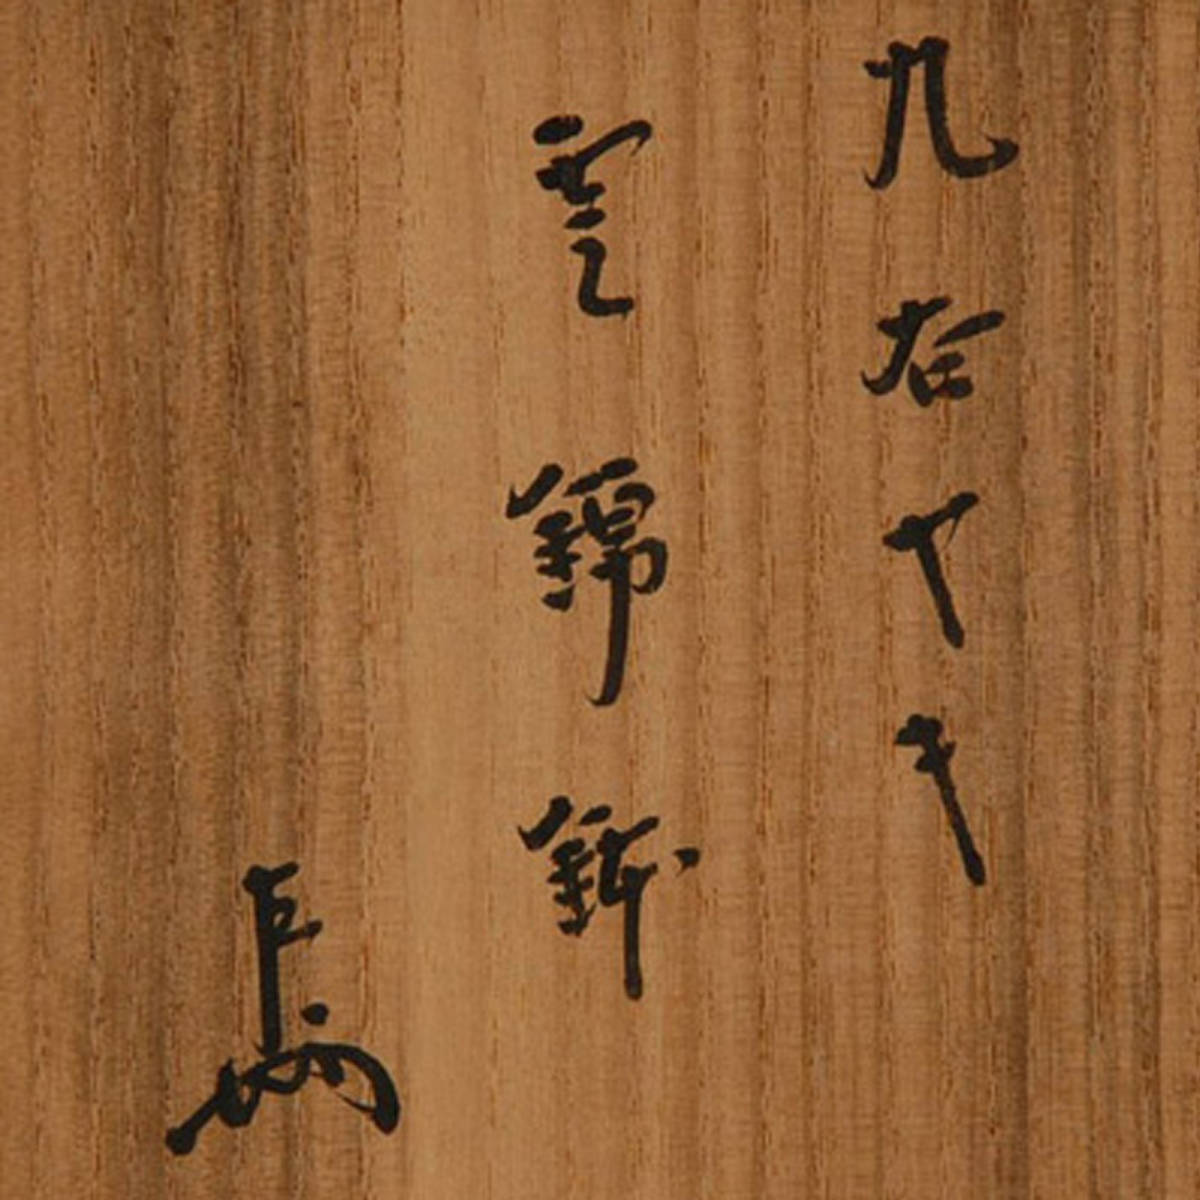 九谷やき
雲錦鉢